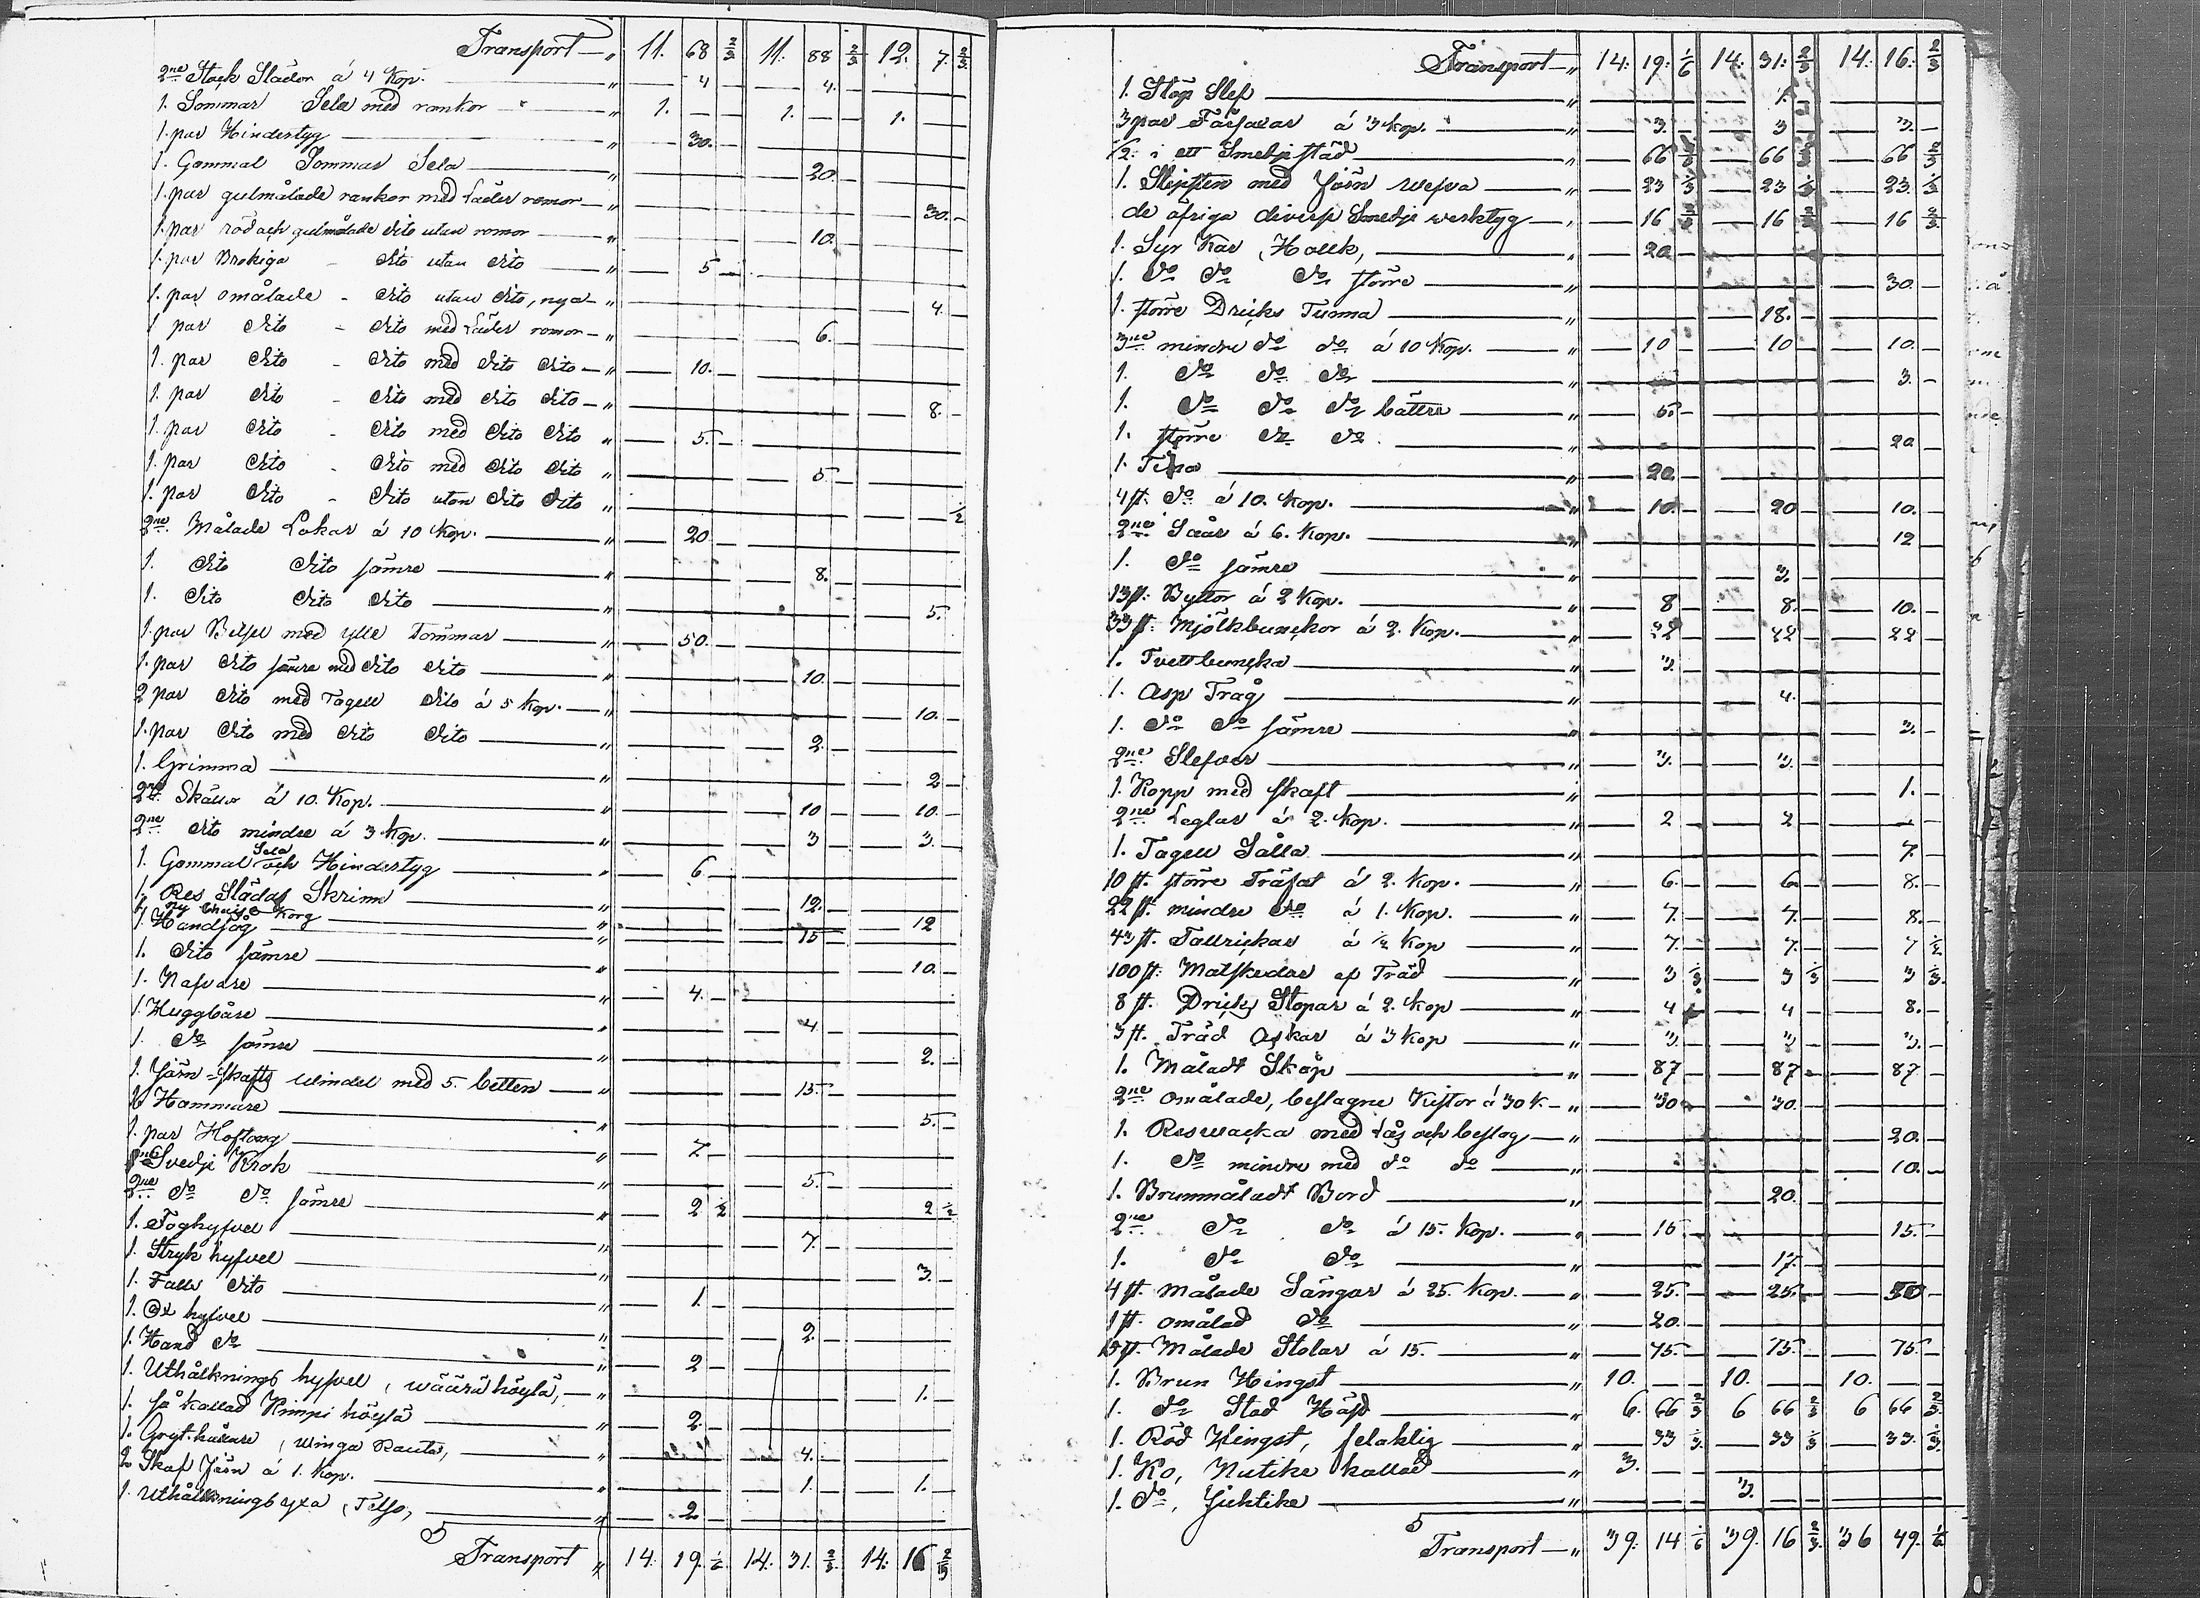 Transport " 11. 68 2/3 11. 88 2/3 12. 7. 2/3
2ne Stack Slädor á 4 Kop. " 4 4.
1. Sommar Sela med rankor " 1. 1. 1.
1. par Hinderstyg " 30.
1. Gammal Sommar Sela " 20.
1. par gulmålade rankor med Läder romor " 30.
1. par röd och gulmålade dito utan romor " 10.
1. par Brokiga dito utan dito " 5
1. par omålade dito utan dito, nya " 4
1 par dito dito med Läder romor " 6.
1. par dito dito med dito dito " 10.
1. par dito dito med dito dito " 8.
1. par dito dito med dito dito " 5.
1. par dito dito med dito dito " 5
1. par dito dito utan dito dito " 1/2
2ne Målade Lokar á 10 Kop. " 20
1. dito dito sämre " 8.
1. dito dito dito " 5.
1. par Betsel med ylle Tömmar " 50.
1. par dito sämre med dito dito " 10.
2 par dito med Tagell dito á 5 Kop. " 10.
1. par dito med dito dito " 2.
1. Grimma " 2
2ne Skällor á 10. Kop. " 10 10.
2ne dito mindre á 3 Kop. " 3 3.
1. Gammal Sela och Hinderstyg " 6
1. Res Slädas Skrin " 12.
1. ny Korg " 12
1. Handsåg " 15
1. dito sämre " 10.
1. Nafvare " 4.
1. Huggbåre " 4
1. do sämre " 2.
1. Järn-skafts Windel med 5. betten " 15.
1. Hammare " 5.
1. par Hoftång " 7
1. Svedje Krok " 5.
2ne do do sämre " 2 1/2 2 1/2
1. Foghyfvel " 7.
1. Stryk hyfvel " 3.
1. Falls dito " 1.
1. Ox hyfvel " 2.
1. Hand do " 2
1. Uthålknings hyfvel, wäärä höylä, " 1.
1. så kallad Kimpi höylä " 2.
1. , winga Rauta, " 4.
2 Skaf Järn á 1. Kop. " 1. 1.
1. Uthålkningsyxa, Telso, " 2
Transport " 14. 19. 1/6 14. 31. 2/3 14. 16 2/3
Transport " 14. 19. 1/6 14. 31. 2/3 14. 16. 2/3
1. Stöp Slef " 1.
3 par Fårsaxar á 3 Kop. " 3. 3 3.
1/2 i ett Smedjestäd " 66 2/3 66 2/3 66 2/3
1. Slipsten med Järn wefva " 23 1/3 23 1/3 23. 1/3
de öfriga diverse Smedje werktyg " 16 2/3 16 2/3 16 2/3
1. Syr Kar, Hollk, " 20
1. do do do större " 30.
1. större Dricks Tunna " 18.
3ne mindre do do á 10 Kop. " 10 10 10.
1. do do do " 3.
1. do do do bättre " 5.
1. större do do " 20
1. Tina " 20.
4 st. do á 10. Kop. " 10. 20 10.
2ne Såår á 6. Kop. " 12
1. do sämre " 3.
13 st. Byttor á 2 Kop. " 8 8. 10.
33 st. Mjölkbunckor á 2. Kop. " 22 22 22
1. Tvettbuncka " 3.
1. Asp Tråg " 4.
1. do do sämre " 3.
2ne Slefvar " 3. 3.
1. Kopp med skaft " 1.
2ne Leglar á 2. Kop. " 2 2
1. Tagell Sålla " 7.
10 st. större Träfat á 2. Kop. " 6. 6. 8.
22 st. mindre do á 1. Kop. " 7. 7. 8.
43 st. Tallrickar á 1/2 Kop " 7. 7. 7 1/2
100 st. Matskedar af Träd " 3 1/3 3 1/3 3 1/3
8 st. Dricks Stopar á 2. Kop " 4 4 8.
3 st. Träd Askar á 3 Kop " 3. 3 3.
1. Måladt Skåp " 87 87 87
2ne Omålade, beslagne Kistor á 30 K. " 30 30.
1. Reswacka med Lås och beslag " 20.
1. do mindre med do do " 10.
1. Brunmåladt Bord " 20.
2ne do do á 15. Kop. " 15 15.
1. do do " 17.
4 st. målade Sängar á 25. Kop. " 25. 25. 50
1 st. omålad do " 20.
15 st. Målade Stolar á 15. " 75. 75. 75.
1. Brun Hingst " 10. 10. 10.
1. do Stod Häst " 6. 66 2/3 6 66 2/3 6 66 2/3
1. Röd Hingst, felaktig " 33 1/3 33 1/3 33. 1/3
1. Ko, Nutike kallad " 3.
1. do, Jichtike " 3.
Transport " 39. 14 1/6 39. 16 2/3 36 49. 1/6